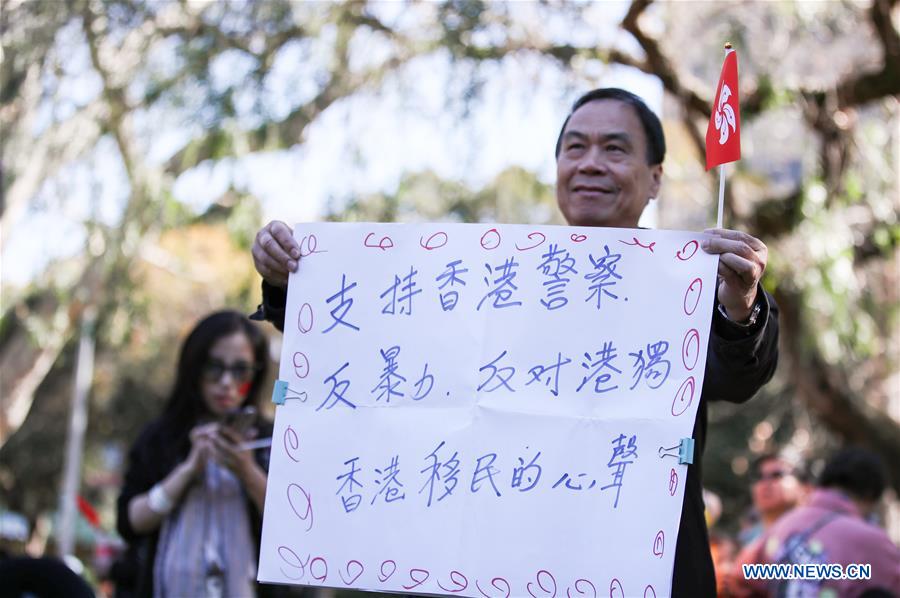 支持香港警察.
反暴力.反对港獨
香港移民的心聲
WWW.NEWS.CN